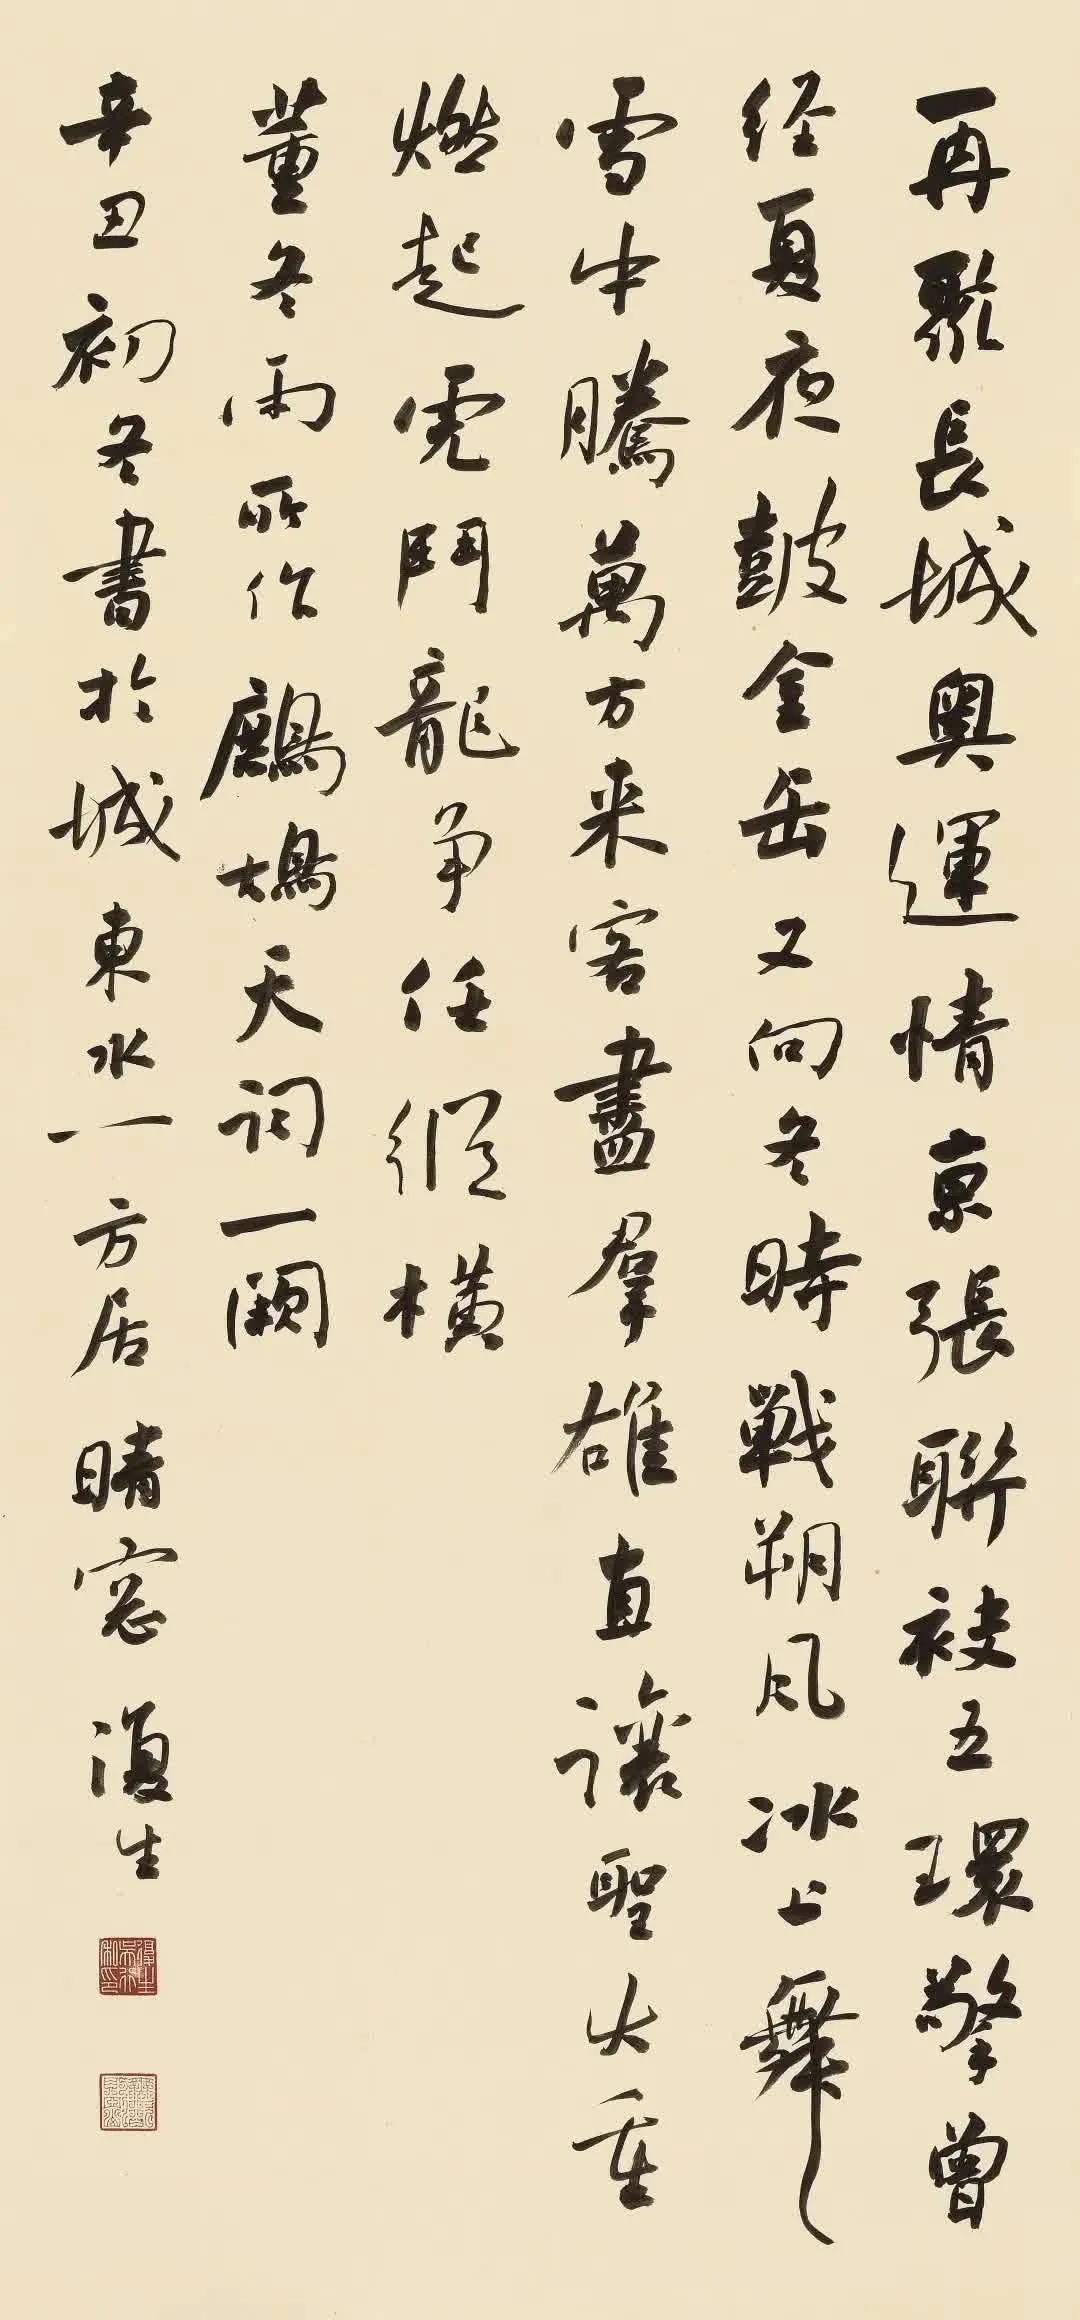 再聚長城奥運情京張聯袂五環擎曾
经夏夜鼓金缶又向冬時戰朔风冰上舞
雪中騰萬方来客盡羣雄直讓聖火重
燃起虎鬥龍争任縱横
董冬雨所作鷓鴣天词一阕
辛丑初冬書於城東水一方居晴窓復生